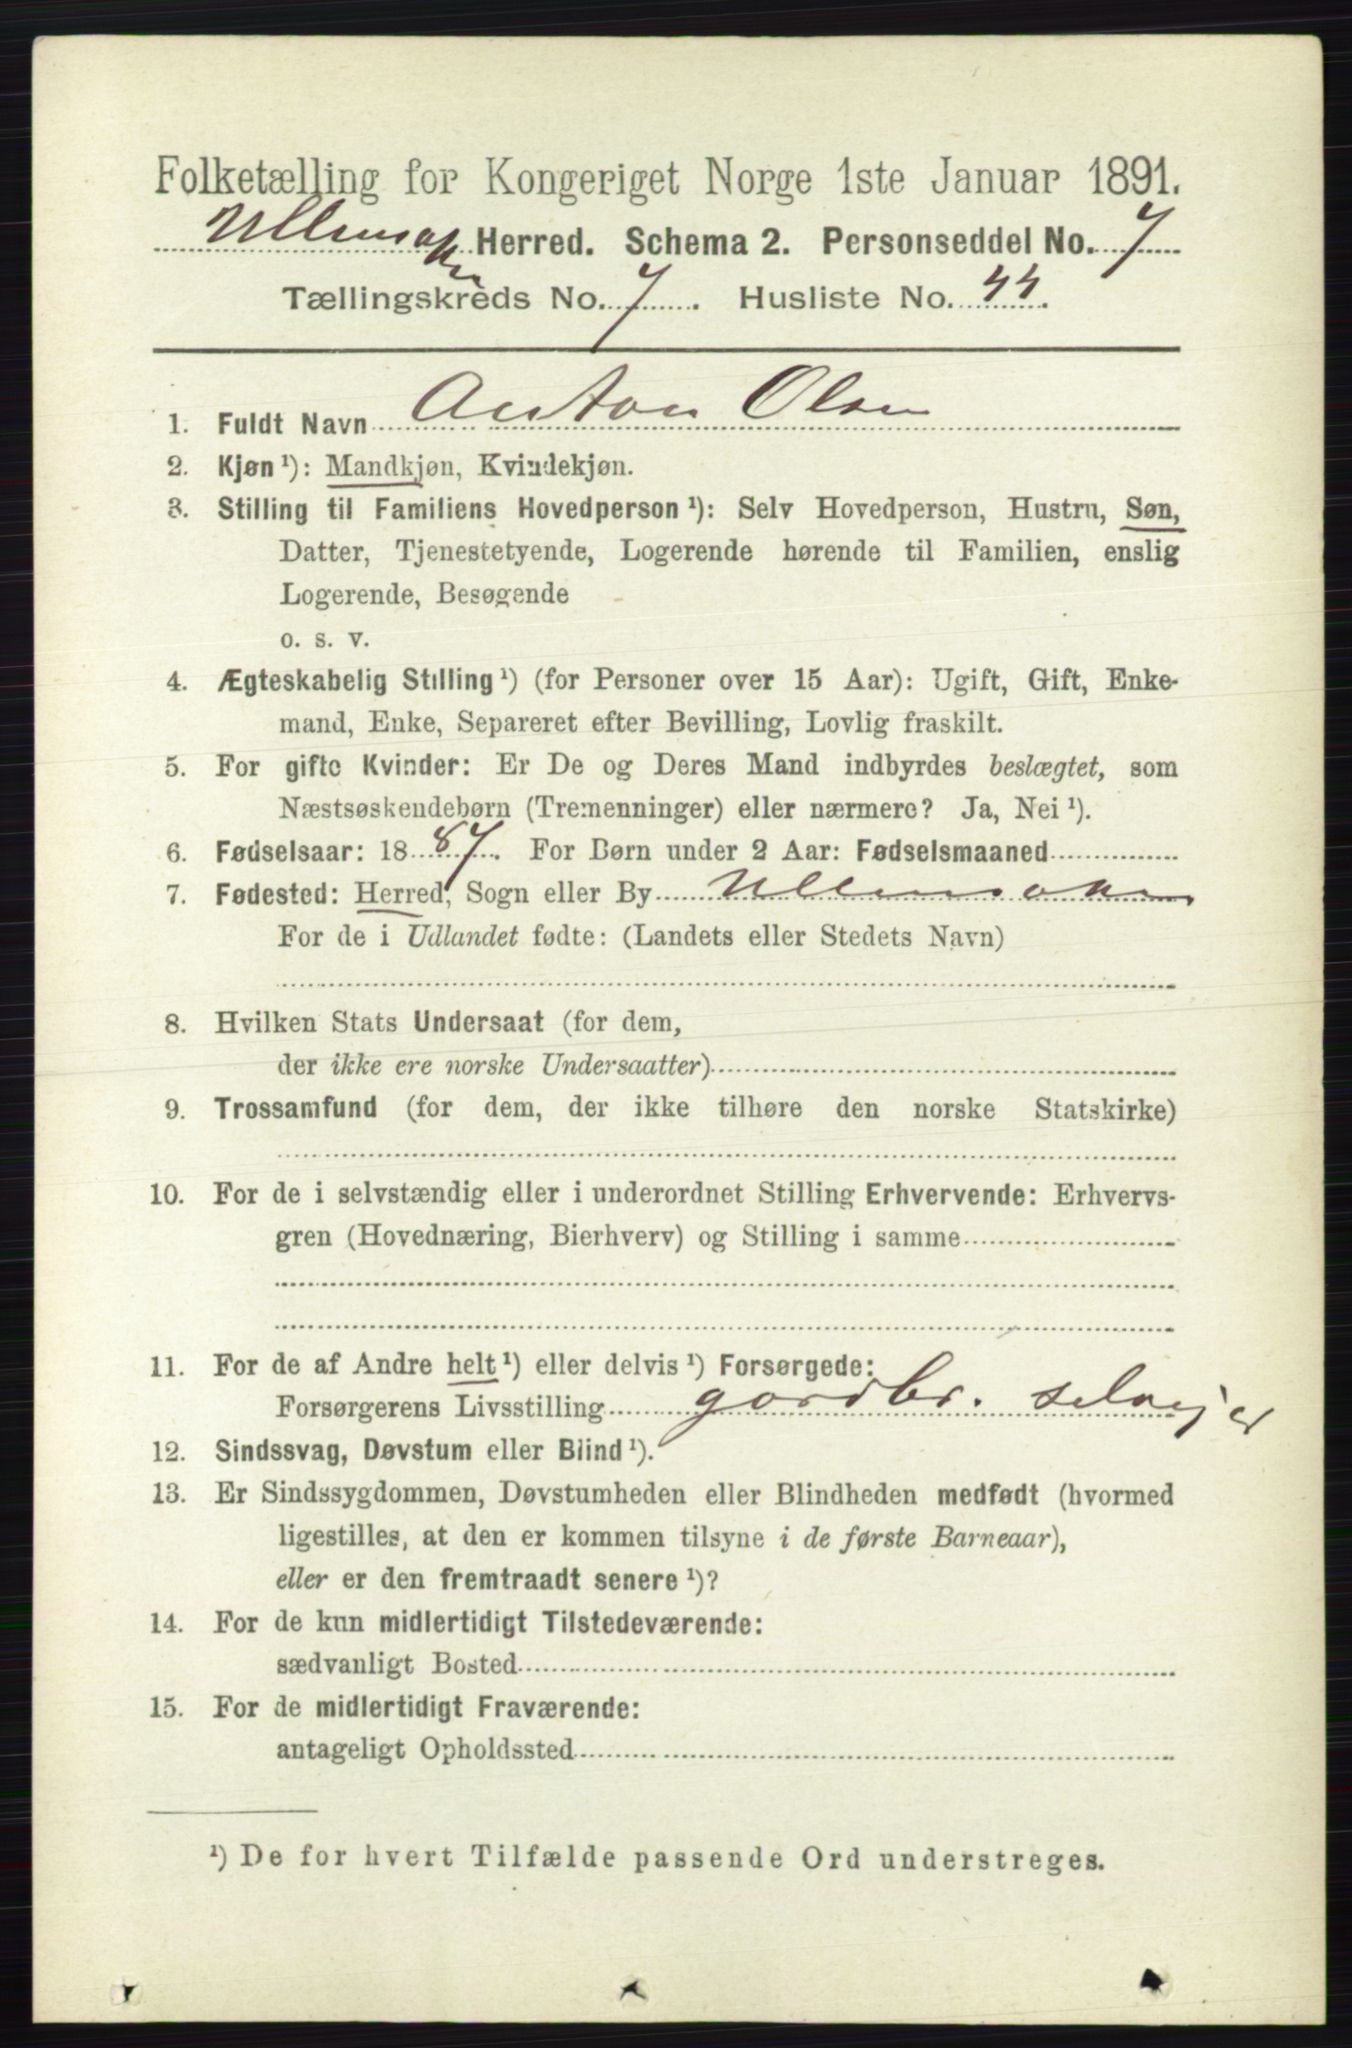 Folketælling for Kongeriget Norge 1ste Januar 1891.
Ullensaker Herred. Schema 2. Personseddel No. 7
Tællingskreds No. 7. Husliste No. 44.
1. Fuldt Navn Anton Olsen
2. Kjøn ¹): Mandkjøn, Kvindekjøn.
3. Stilling til Familiens Hovedperson ¹): Selv Hovedperson, Hustru, Søn,
Datter, Tjenestetyende, Logerende hørende til Familien, enslig
Logerende, Besøgende
o. s. v.
4. Ægteskabelig Stilling ¹) (for Personer over 15 Aar): Ugift, Gift, Enke-
mand, Enke, Separeret efter Bevilling, Lovlig fraskilt.
5. For gifte Kvinder: Er De og Deres Mand indbyrdes beslægtet, som
Næstsøskendebørn (Tremenninger) eller nærmere? Ja, Nei ¹).
6. Fødselsaar: 1887. For Børn under 2 Aar: Fødselsmaaned
7. Fødested: Herred, Sogn eller By Ullensaker
For de i Udlandet fødte: (Landets eller Stedets Navn)
8. Hvilken Stats Undersaat (for dem,
der ikke ere norske Undersaatter)
9. Trossamfund (for dem, der ikke tilhøre den norske Statskirke)
10. For de i selvstændig eller i underordnet Stilling Erhvervende: Erhvervs-
gren (Hovednæring, Bierhverv) og Stilling i samme
11. For de af Andre helt ¹) eller delvis ¹) Forsørgede:
Forsørgerens Livsstilling gardbr. selvejer
12. Sindssvag, Døvstum eller Blind ¹).
13. Er Sindssygdommen, Døvstumheden eller Blindheden medfødt (hvormed
ligestilles, at den er kommen tilsyne i de første Barneaar),
eller er den fremtraadt senere ¹)?
14. For de kun midlertidigt Tilstedeværende:
sædvanligt Bosted
15. For de midlertidigt Fraværende:
antageligt Opholdssted
¹) De for hvert Tilfælde passende Ord understreges.